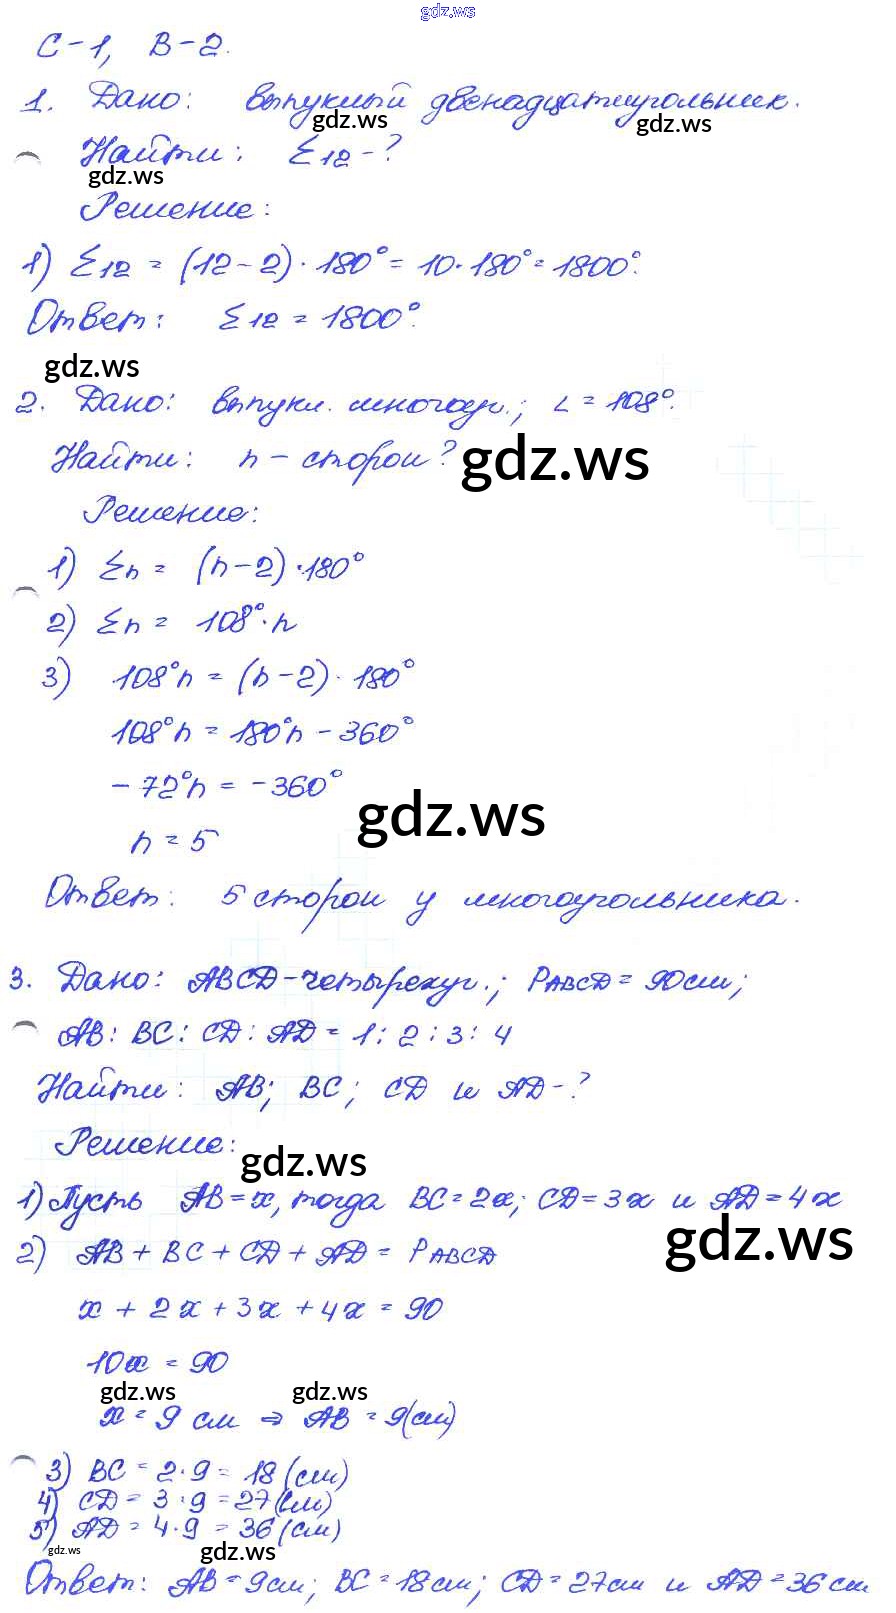 gdz.ws
С-1, В-2.
1. Дано: выпуклый двенадцатиугольник.
gdz.ws gdz.ws
Найти: Σ12 - ?
gdz.ws
Решение:
1) Σ12 = (12-2)·180° = 10·180° = 1800°.
Ответ: Σ12 = 1800°.
gdz.ws
2. Дано: выпукл. многоуг.; ∠ = 108°.
Найти: n - сторон?
gdz.ws
Решение:
1) Σn = (n-2)·180°
2) Σn = 108°·n
3) 108°n = (n-2)·180°
108°n = 180°n - 360°
-72°n = -360°
gdz.ws
n = 5
Ответ: 5 сторон у многоугольника.
3. Дано: ABCD-четырехуг.; PABCD = 90см;
AB : BC : CD : AD = 1 : 2 : 3 : 4
Найти: AB; BC; CD и AD-?
Решение:
gdz.ws
1) Пусть AB = x, тогда BC = 2x; CD = 3x и AD = 4x
gdz.ws
2) AB + BC + CD + AD = PABCD
x + 2x + 3x + 4x = 90
10x = 90
gdz.ws gdz.ws
x = 9 см ⇒ AB = 9(см)
3) BC = 2·9 = 18 (см)
4) CD = 3·9 = 27(см)
5) AD = 4·9 = 36 (см)
gdz.ws gdz.ws
Ответ: AB = 9см; BC = 18см; CD = 27см и AD = 36см